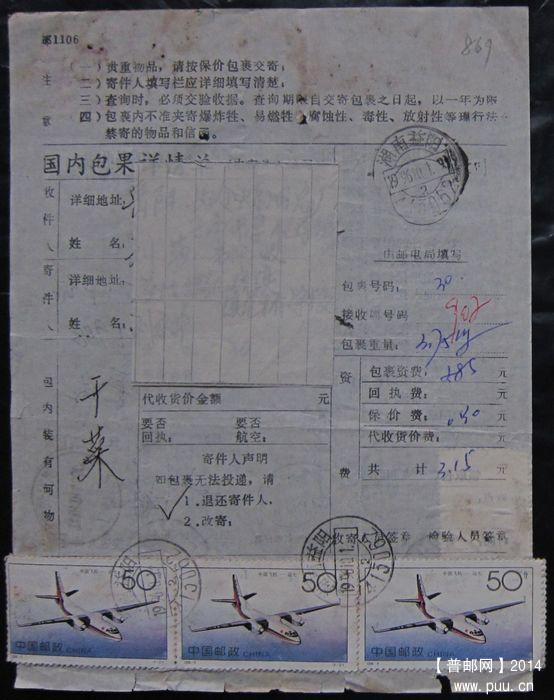 邮1106
869
注意
(一) 贵重物品，请按保价包裹交寄；
(二) 寄件人填写栏应详细填写清楚；
(三) 查询时，必须交验收据。查询期限自交寄包裹之日起，以一年为限
(四) 包裹内不准夹寄爆炸性、易燃性、腐蚀性、毒性、放射性等
禁寄的物品和信函。
国内包裹详情单
湖南益阳
收件人
详细地址：
姓 名：
寄件人
详细地址：
姓 名：
由邮电局填写
包裹号码：
30
接收局号码
包裹重量：
资费
包裹资费：
2.85
元
回执费：
元
保价费：
0.30
元
代收货价费：
元
共 计
3.15
元
代收货价金额 元
要否
回执：
要否
航空：
寄件人声明
如包裹无法投递，请
1．退还寄件人．
2．改寄：
包内装有何物
干菜
收寄人员签章 检验人员签章
益阳
中国飞机
50分
中国邮政 CHINA
中国飞机
50分
中国邮政 CHINA
中国飞机
50分
中国邮政 CHINA
【普邮网】2014
www.puu.cn